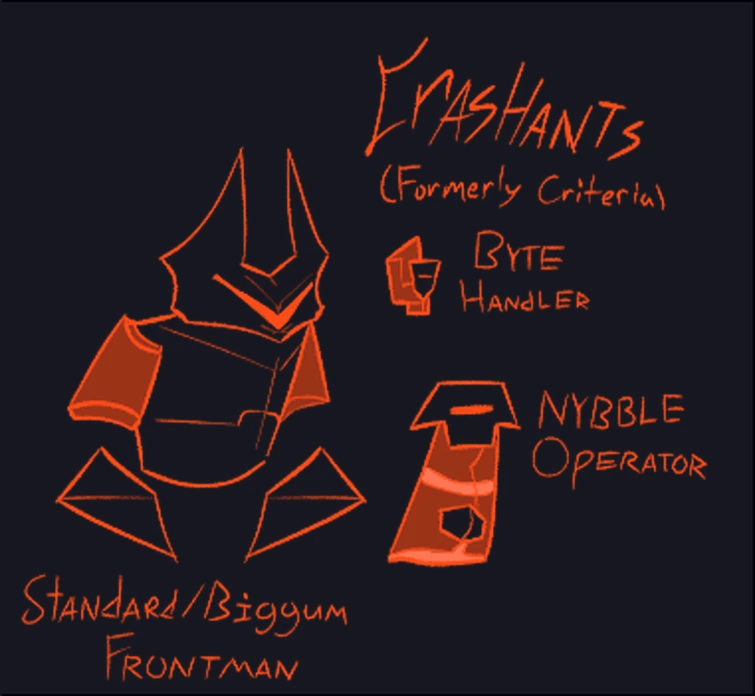 CrASHANTs
(Formerly Criteria)
BYTE
HANdLER
NYBBLE
OpERATOR
STANdARd/Biggum
FRONTMAN